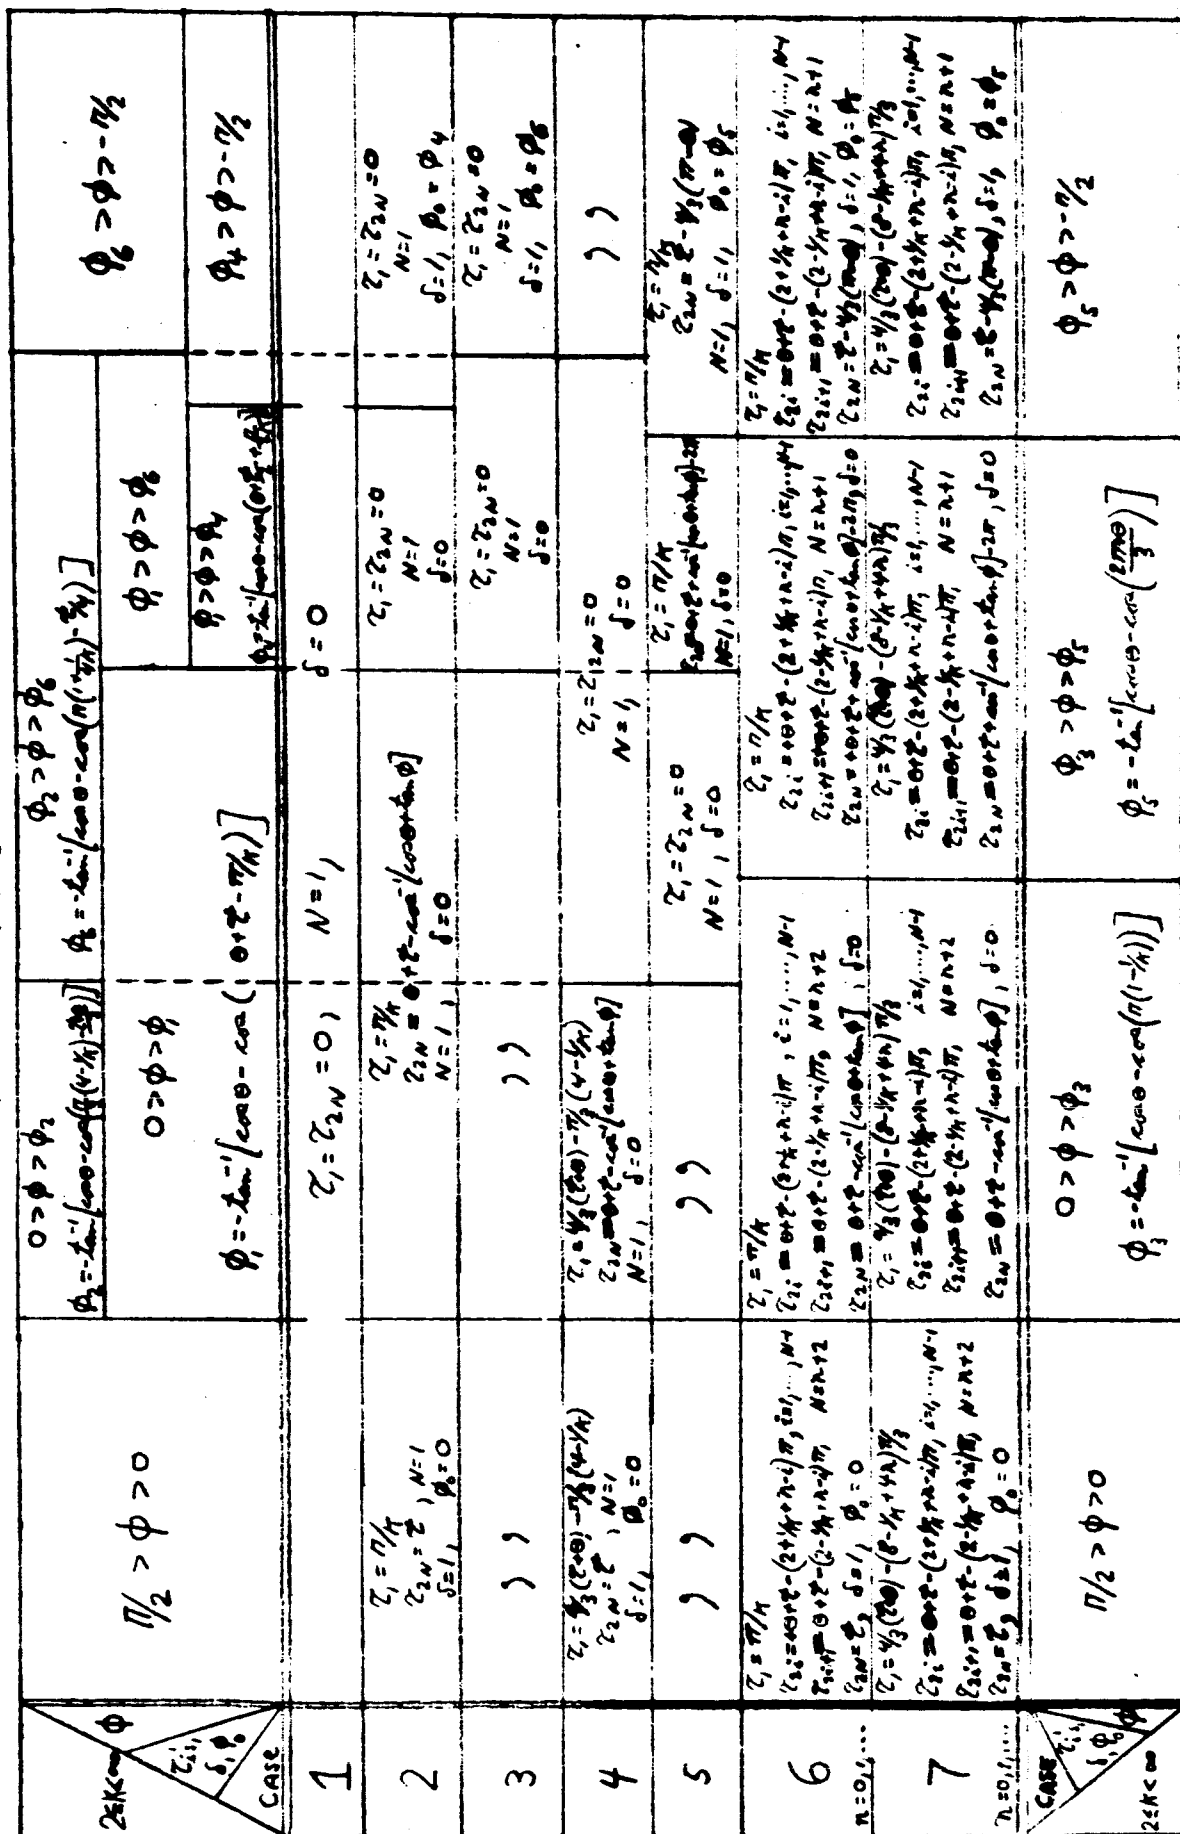 2≤K<∞
φ
τᵢ's,
δ, φ₀
CASE
π/2 > φ > 0
0 > φ > φ₂
φ₂ > φ > φ₆
φ₆ > φ > -π/2
0 > φ > φ₁
φ₁ = -tan⁻¹[cosθ - cos(θ+τ-π/K)]
φ₁ > φ > φ₆
φ₁ > φ > φ₄
φ₄ > φ > -π/2
1
τ₁ = τ₂N = 0, N=1, δ=0
2
τ₁ = π/K
τ₂N = τ, N=1
δ=1, φ₀=0
τ₁ = π/K
τ₂N = θ+τ-cos⁻¹[cosθ+tanφ]
N=1, δ=0
τ₁ = τ₂N = 0
N=1
δ=0
τ₁ = τ₂N = 0
N=1
δ=1, φ₀ = φ₄
3
,,
,,
τ₁ = τ₂N = 0
N=1
δ=0
τ₁ = τ₂N = 0
N=1
δ=1, φ₀ = φ₆
4
τ₁ = 4/3(τ+θ) - π/3(4-1/K)
τ₂N = τ, N=1
δ=1, φ₀=0
τ₁ = 4/3(τ+θ) - π/3(4-1/K)
τ₂N = θ+τ-cos⁻¹[cosθ+tanφ]
N=1, δ=0
τ₁ = τ₂N = 0
N=1, δ=0
,,
5
,,
,,
τ₁ = τ₂N = 0
N=1, δ=0
τ₁ = π/K
N=1, δ=0
τ₂N = τ-4/3(π-θ)
N=1, δ=1, φ₀ = φ₅
6
n=0,1,...
τ₁ = π/K
τ₂ᵢ = θ+τ-(2+1/K+n-i)π, i=1,...,N-1
τ₂ᵢ₊₁ = θ+τ-(2-1/K+n-i)π, N=n+2
τ₂N = τ, δ=1, φ₀=0
τ₁ = π/K
τ₂ᵢ = θ+τ-(2+1/K+n-i)π, i=1,...,N-1
τ₂ᵢ₊₁ = θ+τ-(2-1/K+n-i)π, N=n+2
τ₂N = θ+τ-cos⁻¹[cosθ+tanφ], δ=0
τ₁ = π/K
τ₂ᵢ = θ+τ-(2+1/K+n-i)π, i=1,...,N-1
τ₂ᵢ₊₁ = θ+τ-(2-1/K+n-i)π, N=n+1
τ₂N = θ+τ+cos⁻¹[cosθ+tanφ]-2π, δ=0
τ₁ = π/K
τ₂ᵢ = θ+τ-(2+1/K+n-i)π, i=1,...,N-1
τ₂ᵢ₊₁ = θ+τ-(2-1/K+n-i)π, N=n+1
τ₂N = τ-4/3(π-θ), δ=1, φ₀=φ₅
7
n=0,1,...
τ₁ = 4/3(τ+θ)-(8-1/K+4n)π/3
τ₂ᵢ = θ+τ-(2+1/K+n-i)π, i=1,...,N-1
τ₂ᵢ₊₁ = θ+τ-(2-1/K+n-i)π, N=n+2
τ₂N = τ, δ=1, φ₀=0
τ₁ = 4/3(τ+θ)-(8-1/K+4n)π/3
τ₂ᵢ = θ+τ-(2+1/K+n-i)π, i=1,...,N-1
τ₂ᵢ₊₁ = θ+τ-(2-1/K+n-i)π, N=n+2
τ₂N = θ+τ-cos⁻¹[cosθ+tanφ], δ=0
τ₁ = 4/3(τ+θ)-(8-1/K+4n)π/3
τ₂ᵢ = θ+τ-(2+1/K+n-i)π, i=1,...,N-1
τ₂ᵢ₊₁ = θ+τ-(2-1/K+n-i)π, N=n+1
τ₂N = θ+τ+cos⁻¹[cosθ+tanφ]-2π, δ=0
τ₁ = 4/3(τ+θ)-(8-1/K+4n)π/3
τ₂ᵢ = θ+τ-(2+1/K+n-i)π, i=1,...,N-1
τ₂ᵢ₊₁ = θ+τ-(2-1/K+n-i)π, N=n+1
τ₂N = τ-4/3(π-θ), δ=1, φ₀=φ₅
CASE
τᵢ's,
δ, φ₀
φ
2≤K<∞
π/2 > φ > 0
0 > φ > φ₃
φ₃ = -tan⁻¹[cosθ-cos(π(1-1/K))]
φ₃ > φ > φ₅
φ₅ > φ > -π/2